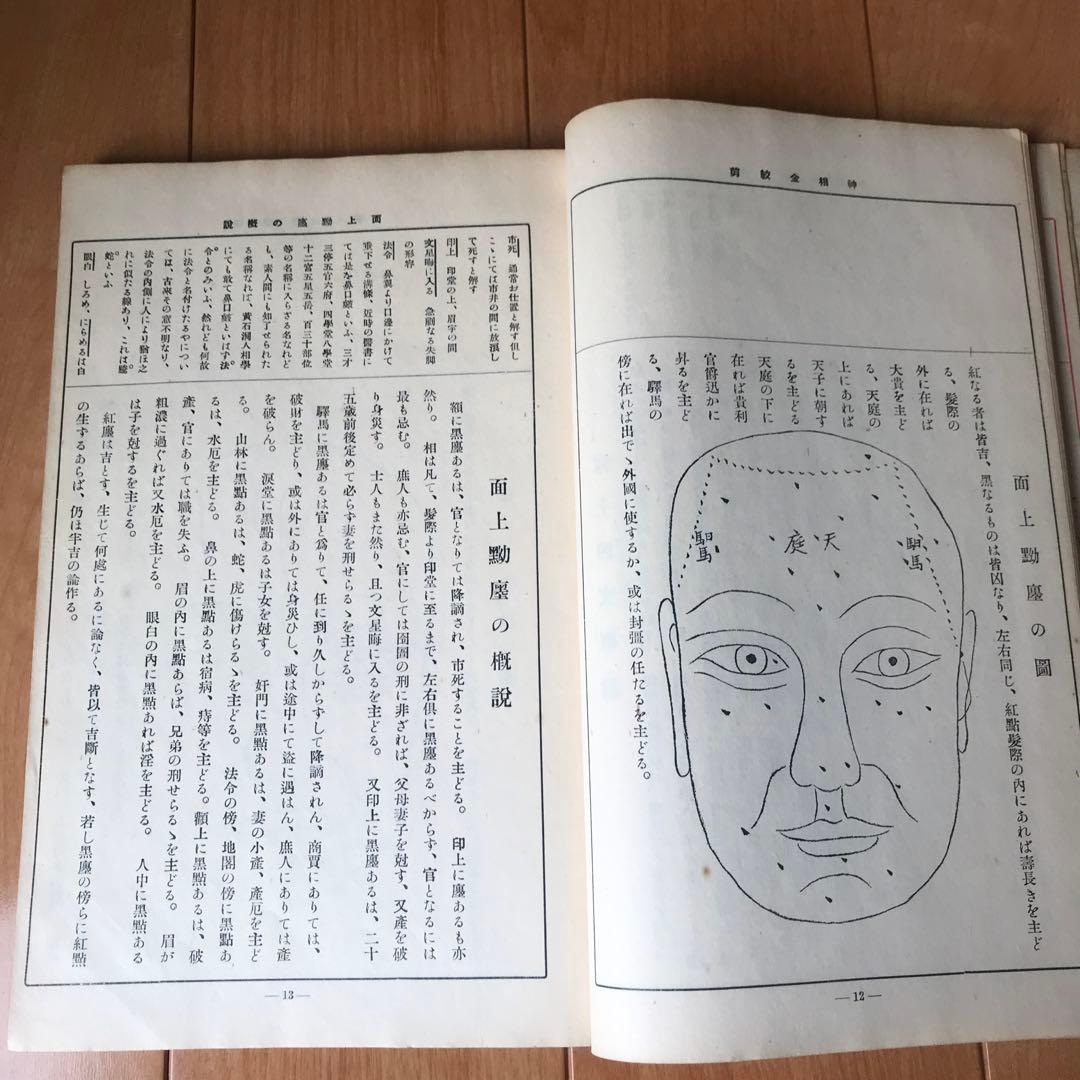 神相金較剪
面上黝黶の圖
紅なる者は皆吉、黒なるものは皆凶なり、左右同じ、紅點髮際の內にあれば壽長きを主ど
る、髮際の
外に在れば
大貴を主ど
る、天庭の
上にあれば
天子に朝す
るを主どる
天庭の下に
在れば貴利
官爵迅かに
外るを主ど
る、驛馬の
傍に在れば出でゝ外國に使するか、或は封彊の任たるを主どる。
驛馬
天庭
驛馬
—12—
面上黝黶の概說
市死 通常お仕置と解す但し
こゝにては市井の間に放浪し
て死すと解す
印上 印堂の上、眉宇の間
文星晦に入る 急劇なる失脚
の形容
法令 鼻翼より口邊にかけて
垂下せる溝條、近時の醫書に
ては是を鼻口皺といふ、三才
三停五官六府、四學堂八學堂
十二宮五星五岳、百三十部位
等の名稱に入らざる名なれど
も、素人間にも知了せられた
る名稱なれば、黃石濶人相學
にても敢て鼻口皺といはず法
令とのみいふ、然れども何故
に法令と名付けたるやについ
ては、古來その意不明なり、
法令の內側に人により猶ほ之
れに似たる線あり、これは螣
蛇といふ
眼白 しろめ、にらめるは白
面上黝黶の概說
額に黑黶あるは、官となりては降謫され、市死することを主どる。 印上に黶あるも亦
然り。 相は凡て、髮際より印堂に至るまで、左右俱に黑黶あるべからず、官となるには
最も忌む。 庶人も亦忌む、官にしては囹圄の刑に非ざれば、父母妻子を尅す、又產を破
り身災す。 士人もまた然り、且つ文星晦に入るを主どる。 又印上に黑黶あるは、二十
五歲前後定めて必らず妻を刑せらるゝを主どる。
驛馬に黑黶あるは官と爲りて、任に到り久しからずして降謫されん、商賈にありては、
破財を主どり、或は外にありては身災ひし、或は途中にて盜に遇はん、庶人にありては產
を破らん。 淚堂に黑點あるは子女を尅す。 奸門に黑點あるは、妻の小產、產厄を主ど
る。 山林に黑點あるは、蛇、虎に傷けらるゝを主どる。 法令の傍、地閣の傍に黑點あ
るは、水厄を主どる。 鼻の上に黑點あるは宿病、痔等を主どる。顴上に黑點あるは、破
產、官にありては職を失ふ。 眉の內に黑點あらば、兄弟の刑せらるゝを主どる。 眉が
粗濃に過ぐれば又水厄を主どる。 眼白の內に黑點あれば淫を主どる。 人中に黑點ある
は子を尅するを主どる。
紅黶は吉とす、生じて何處にあるに論なく、皆以て吉斷となす、若し黑黶の傍らに紅點
の生ずるあらば、仍ほ半吉の論作る。
—13—